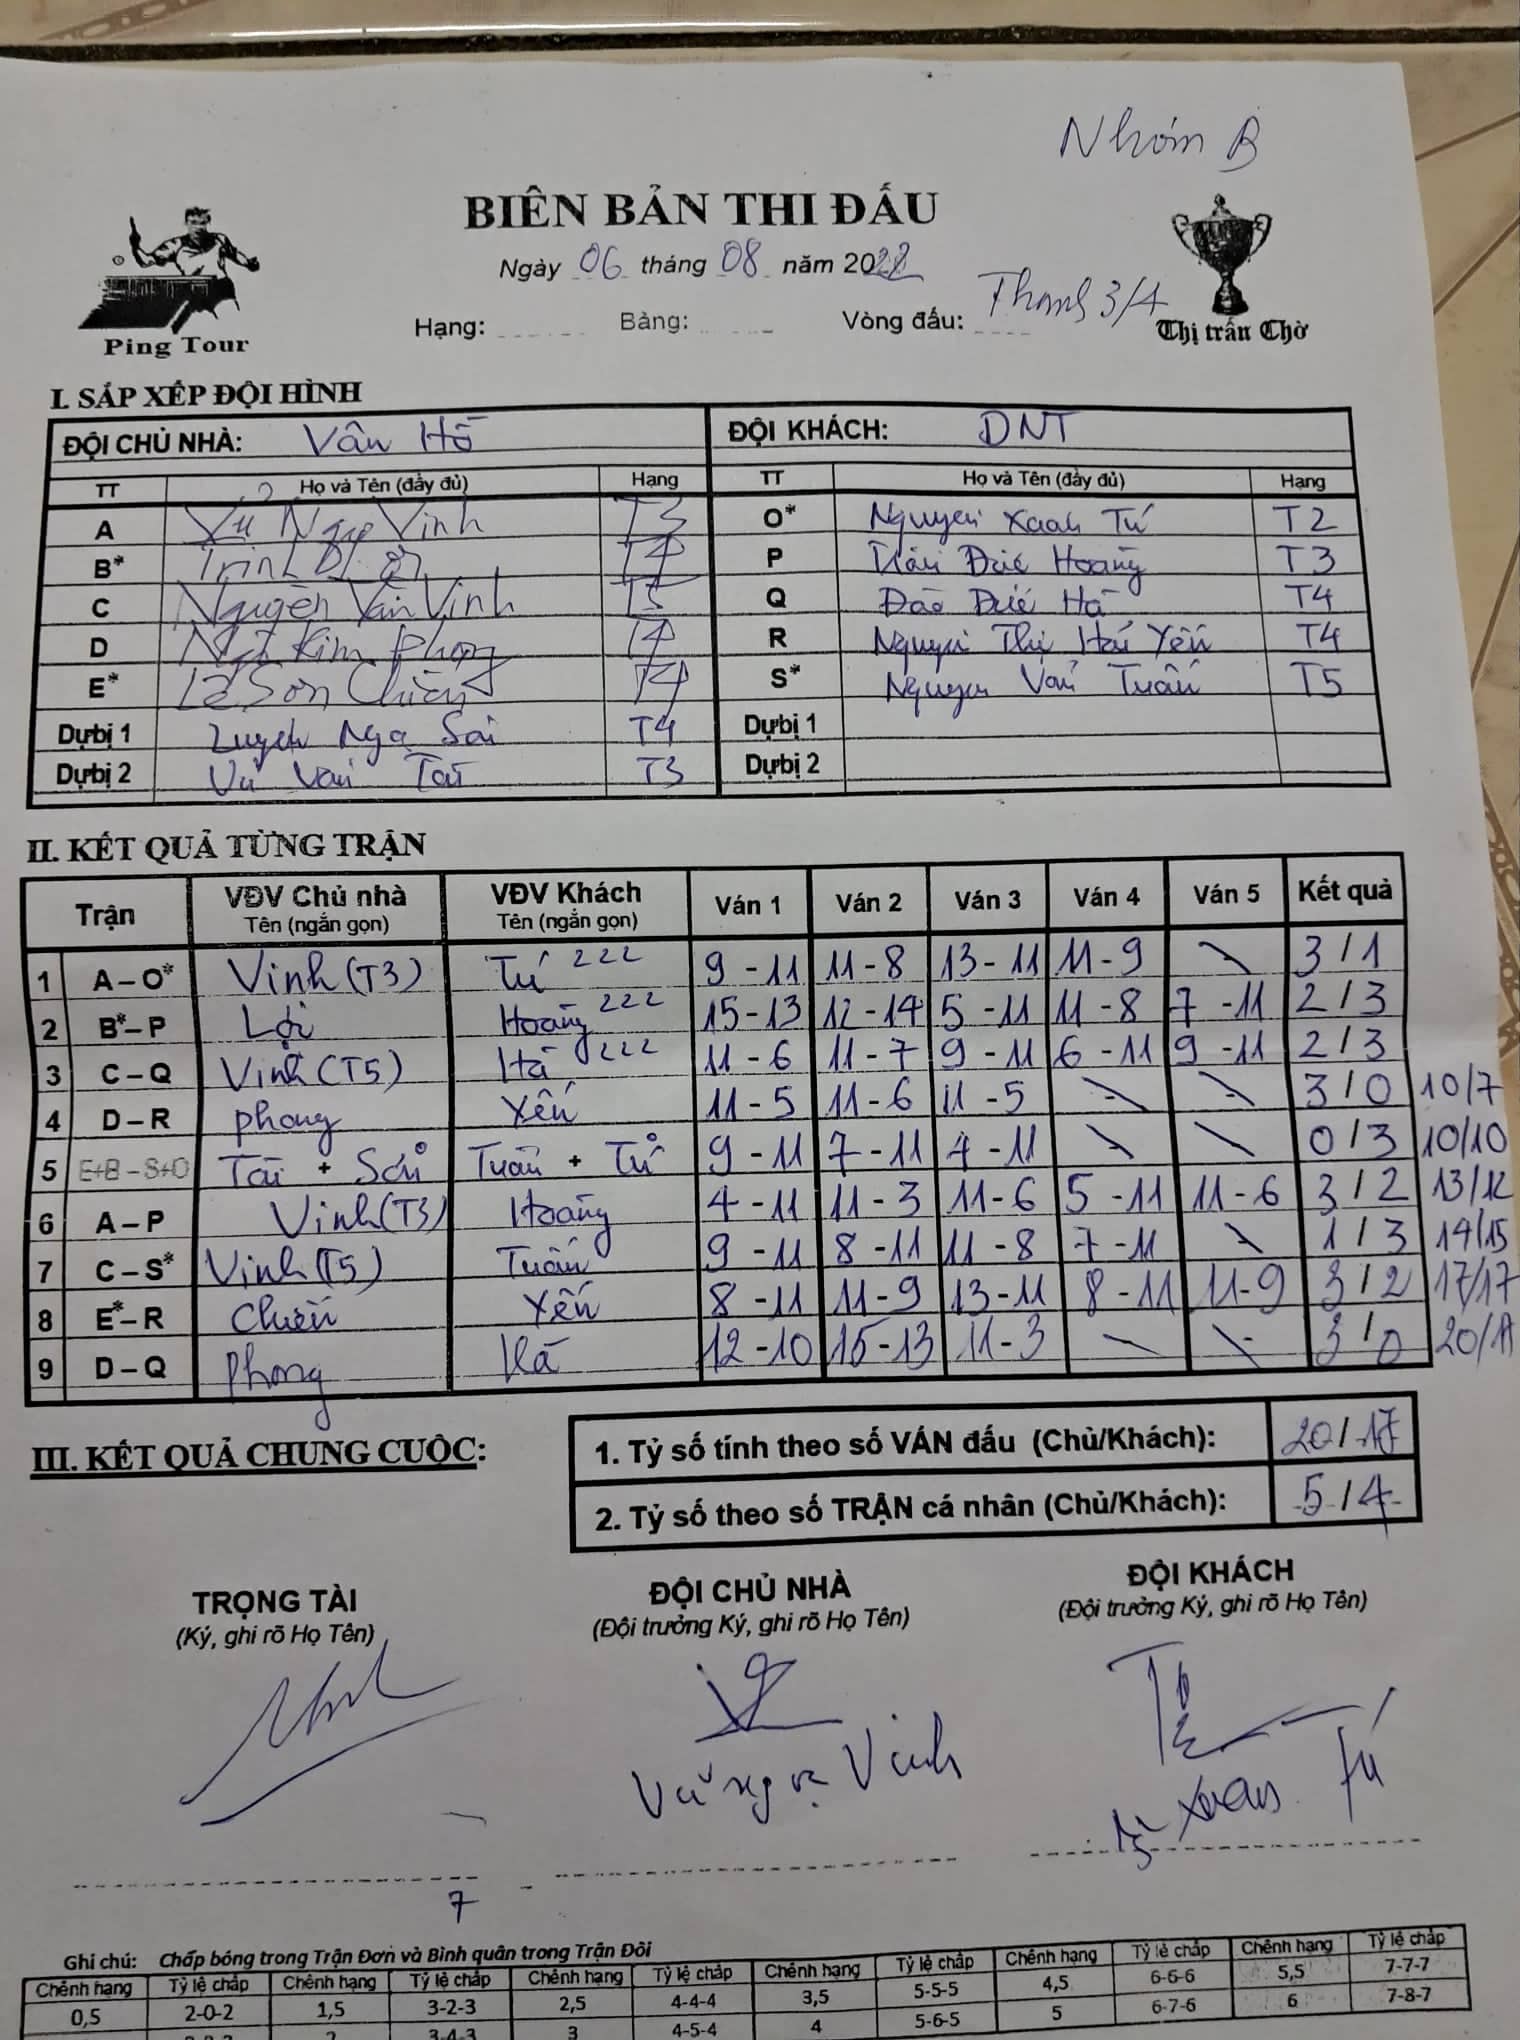 Nhóm B
BIÊN BẢN THI ĐẤU
Ngày 06 tháng 08 năm 2022
Hạng: Bảng: Vòng đấu: Tranh 3/4
Ping Tour
Thị trấn Chờ
I. SẮP XẾP ĐỘI HÌNH
ĐỘI CHỦ NHÀ: Vân Hồ ĐỘI KHÁCH: DNT
TT Họ và Tên (đầy đủ) Hạng TT Họ và Tên (đầy đủ) Hạng
A Vinh T3 O* Nguyen Xuan Tú T2
B* Trinh T4 P Trần Đức Hoàng T3
C Nguyễn Văn Vinh T5 Q Đào Đức Hà T4
D Ngô Kim Phong T4 R Nguyen Thị Hải Yến T4
E* Lê Sơn Chiến T4 S* Nguyen Văn Tuấn T5
Dự bị 1 Nga Sơn T4 Dự bị 1
Dự bị 2 Vũ Van Tài T3 Dự bị 2
II. KẾT QUẢ TỪNG TRẬN
Trận VĐV Chủ nhà Tên (ngắn gọn) VĐV Khách Tên (ngắn gọn) Ván 1 Ván 2 Ván 3 Ván 4 Ván 5 Kết quả
1 A – O* Vinh (T3) Tú 222 9 - 11 11 - 8 13 - 11 11 - 9 \ 3 / 1
2 B* – P Lợi Hoàng 222 15 - 13 12 - 14 5 - 11 11 - 8 7 - 11 2 / 3
3 C – Q Vinh (T5) Hà 222 11 - 6 11 - 7 9 - 11 6 - 11 9 - 11 2 / 3
4 D – R Phong Yến 11 - 5 11 - 6 11 - 5 \ \ 3 / 0 10/7
5 E+B – S+O Tài + Sơn Tuấn + Tú 9 - 11 7 - 11 7 - 11 \ \ 0 / 3 10/10
6 A – P Vinh (T3) Hoàng 4 - 11 11 - 3 11 - 6 5 - 11 11 - 6 3 / 2 13/12
7 C – S* Vinh (T5) Tuấn 9 - 11 8 - 11 11 - 8 7 - 11 \ 1 / 3 14/15
8 E* – R Chiến Yến 8 - 11 11 - 9 13 - 11 8 - 11 11 - 9 3 / 2 17/17
9 D – Q Phong Hà 12 - 10 15 - 13 11 - 3 \ \ 3 / 0 20/17
III. KẾT QUẢ CHUNG CUỘC:
1. Tỷ số tính theo số VÁN đấu (Chủ/Khách): 20 / 17
2. Tỷ số theo số TRẬN cá nhân (Chủ/Khách): 5 / 4
TRỌNG TÀI ĐỘI CHỦ NHÀ ĐỘI KHÁCH
(Ký, ghi rõ Họ Tên) (Đội trưởng Ký, ghi rõ Họ Tên) (Đội trưởng Ký, ghi rõ Họ Tên)
Vũ Ngọc Vinh Xuan Tú
7
Ghi chú: Chấp bóng trong Trận Đơn và Bình quân trong Trận Đôi
Chênh hạng Tỷ lệ chấp Chênh hạng Tỷ lệ chấp Chênh hạng Tỷ lệ chấp Chênh hạng Tỷ lệ chấp Chênh hạng Tỷ lệ chấp Chênh hạng Tỷ lệ chấp
0,5 2-0-2 1,5 3-2-3 2,5 4-4-4 3,5 5-5-5 4,5 6-6-6 5,5 7-7-7
2 3-4-3 3 4-5-4 4 5-6-5 5 6-7-6 6 7-8-7